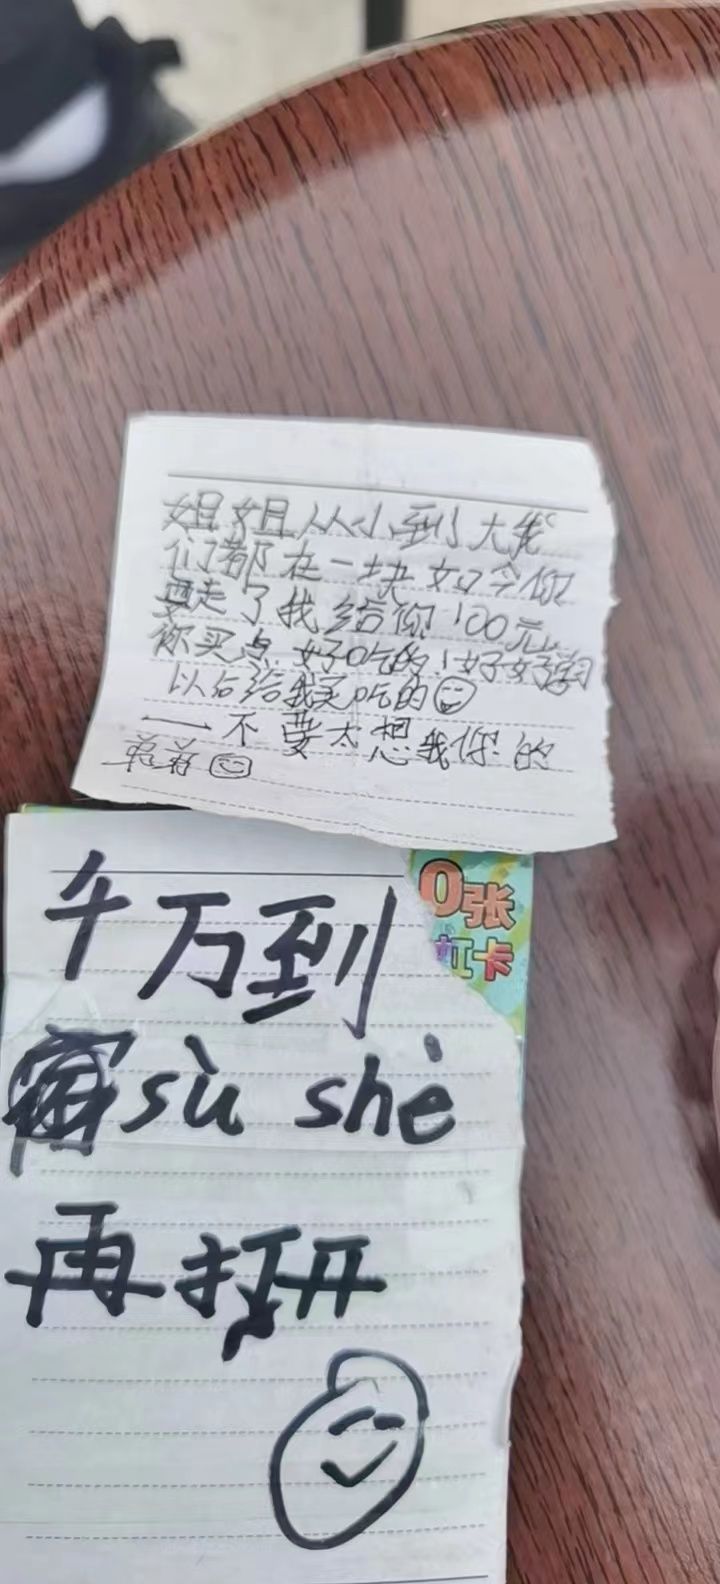 姐姐从小到大我
们都在一块如今你
要走了我给你100元
你买点好吃的！好好学习
以后给我买吃的
——不要太想我你的
弟弟
0张
卡
千万到
sù shè
再打开